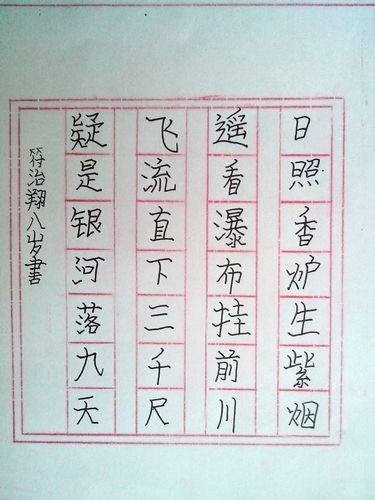 日照香炉生紫烟
遥看瀑布挂前川
飞流直下三千尺
疑是银河落九天
符治翔八岁書